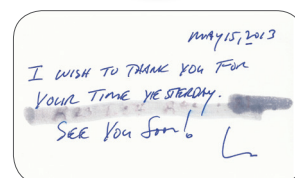 MAY 15, 2013
I WISH TO THANK YOU FOR
YOUR TIME YESTERDAY.
SEE YOU SOON!